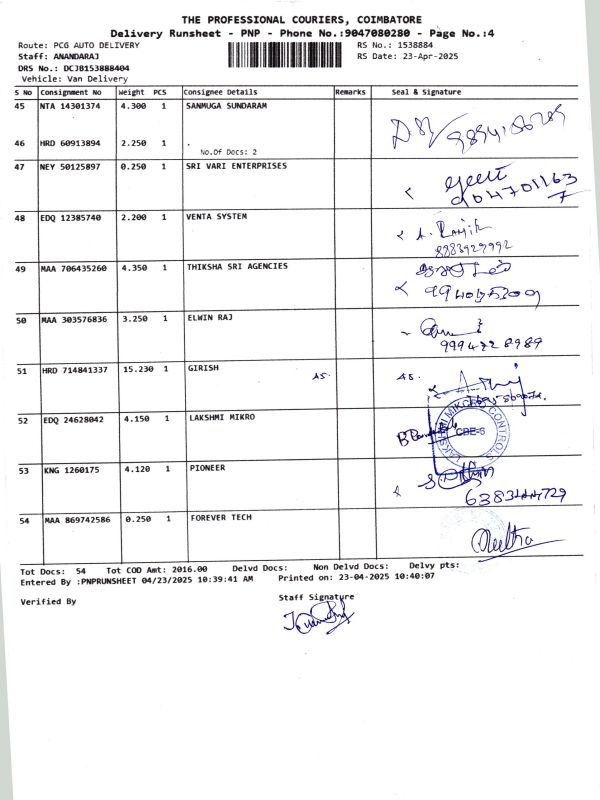 THE PROFESSIONAL COURIERS, COIMBATORE
Delivery Runsheet - PNP - Phone No.:9047080280 - Page No.:4
Route: PCG AUTO DELIVERY RS No.: 1538884
Staff: ANANDARAJ RS Date: 23-Apr-2025
DRS No.: DCJB153888404
Vehicle: Van Delivery
S No Consignment No Weight PCS Consignee Details Remarks Seal & Signature
45 NTA 14301374 4.300 1 SANMUGA SUNDARAM
46 HRD 60913894 2.250 1 .
No.Of Docs: 2
47 NEY 50125897 0.250 1 SRI VARI ENTERPRISES
48 EDQ 12385740 2.200 1 VENTA SYSTEM
8883929992
49 MAA 706435260 4.350 1 THIKSHA SRI AGENCIES
50 MAA 303576836 3.250 1 ELWIN RAJ
9994228989
51 HRD 714841337 15.230 1 GIRISH
52 EDQ 24628042 4.150 1 LAKSHMI MIKRO
LAKSHMI MIKRO CONTROLS
CBE-6
53 KNG 1260175 4.120 1 PIONEER
54 MAA 869742586 0.250 1 FOREVER TECH
Tot Docs: 54 Tot COD Amt: 2016.00 Delvd Docs: Non Delvd Docs: Delvy pts:
Entered By :PNPRUNSHEET 04/23/2025 10:39:41 AM Printed on: 23-04-2025 10:40:07
Verified By Staff Signature